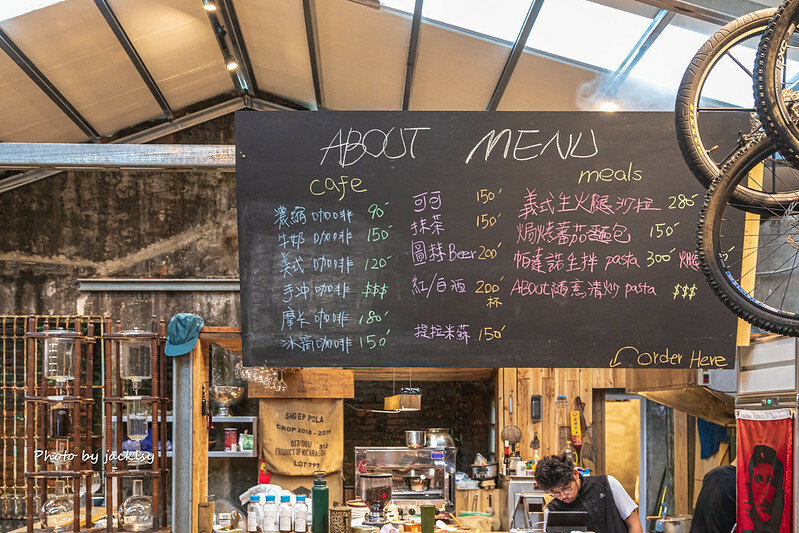 ABOUT MENU
cafe
濃縮咖啡 90
牛奶咖啡 150
美式咖啡 120
手沖咖啡 $$$
摩卡咖啡 180
冰滴咖啡 150
可可 150
抹茶 150
圖騰Beer 200
紅/白酒 200杯
提拉米蘇 150
meals
義式生火腿沙拉 280
焗烤蕃茄麵包 150
帕達諾生拌 pasta 300
ABOUT隨意清炒 pasta $$$
Order Here
SHG EP POLA
CROP 2018 - 2019
017/001/
PRODUCT OF NICARAGUA
LOT 777
Photo by jacklsy